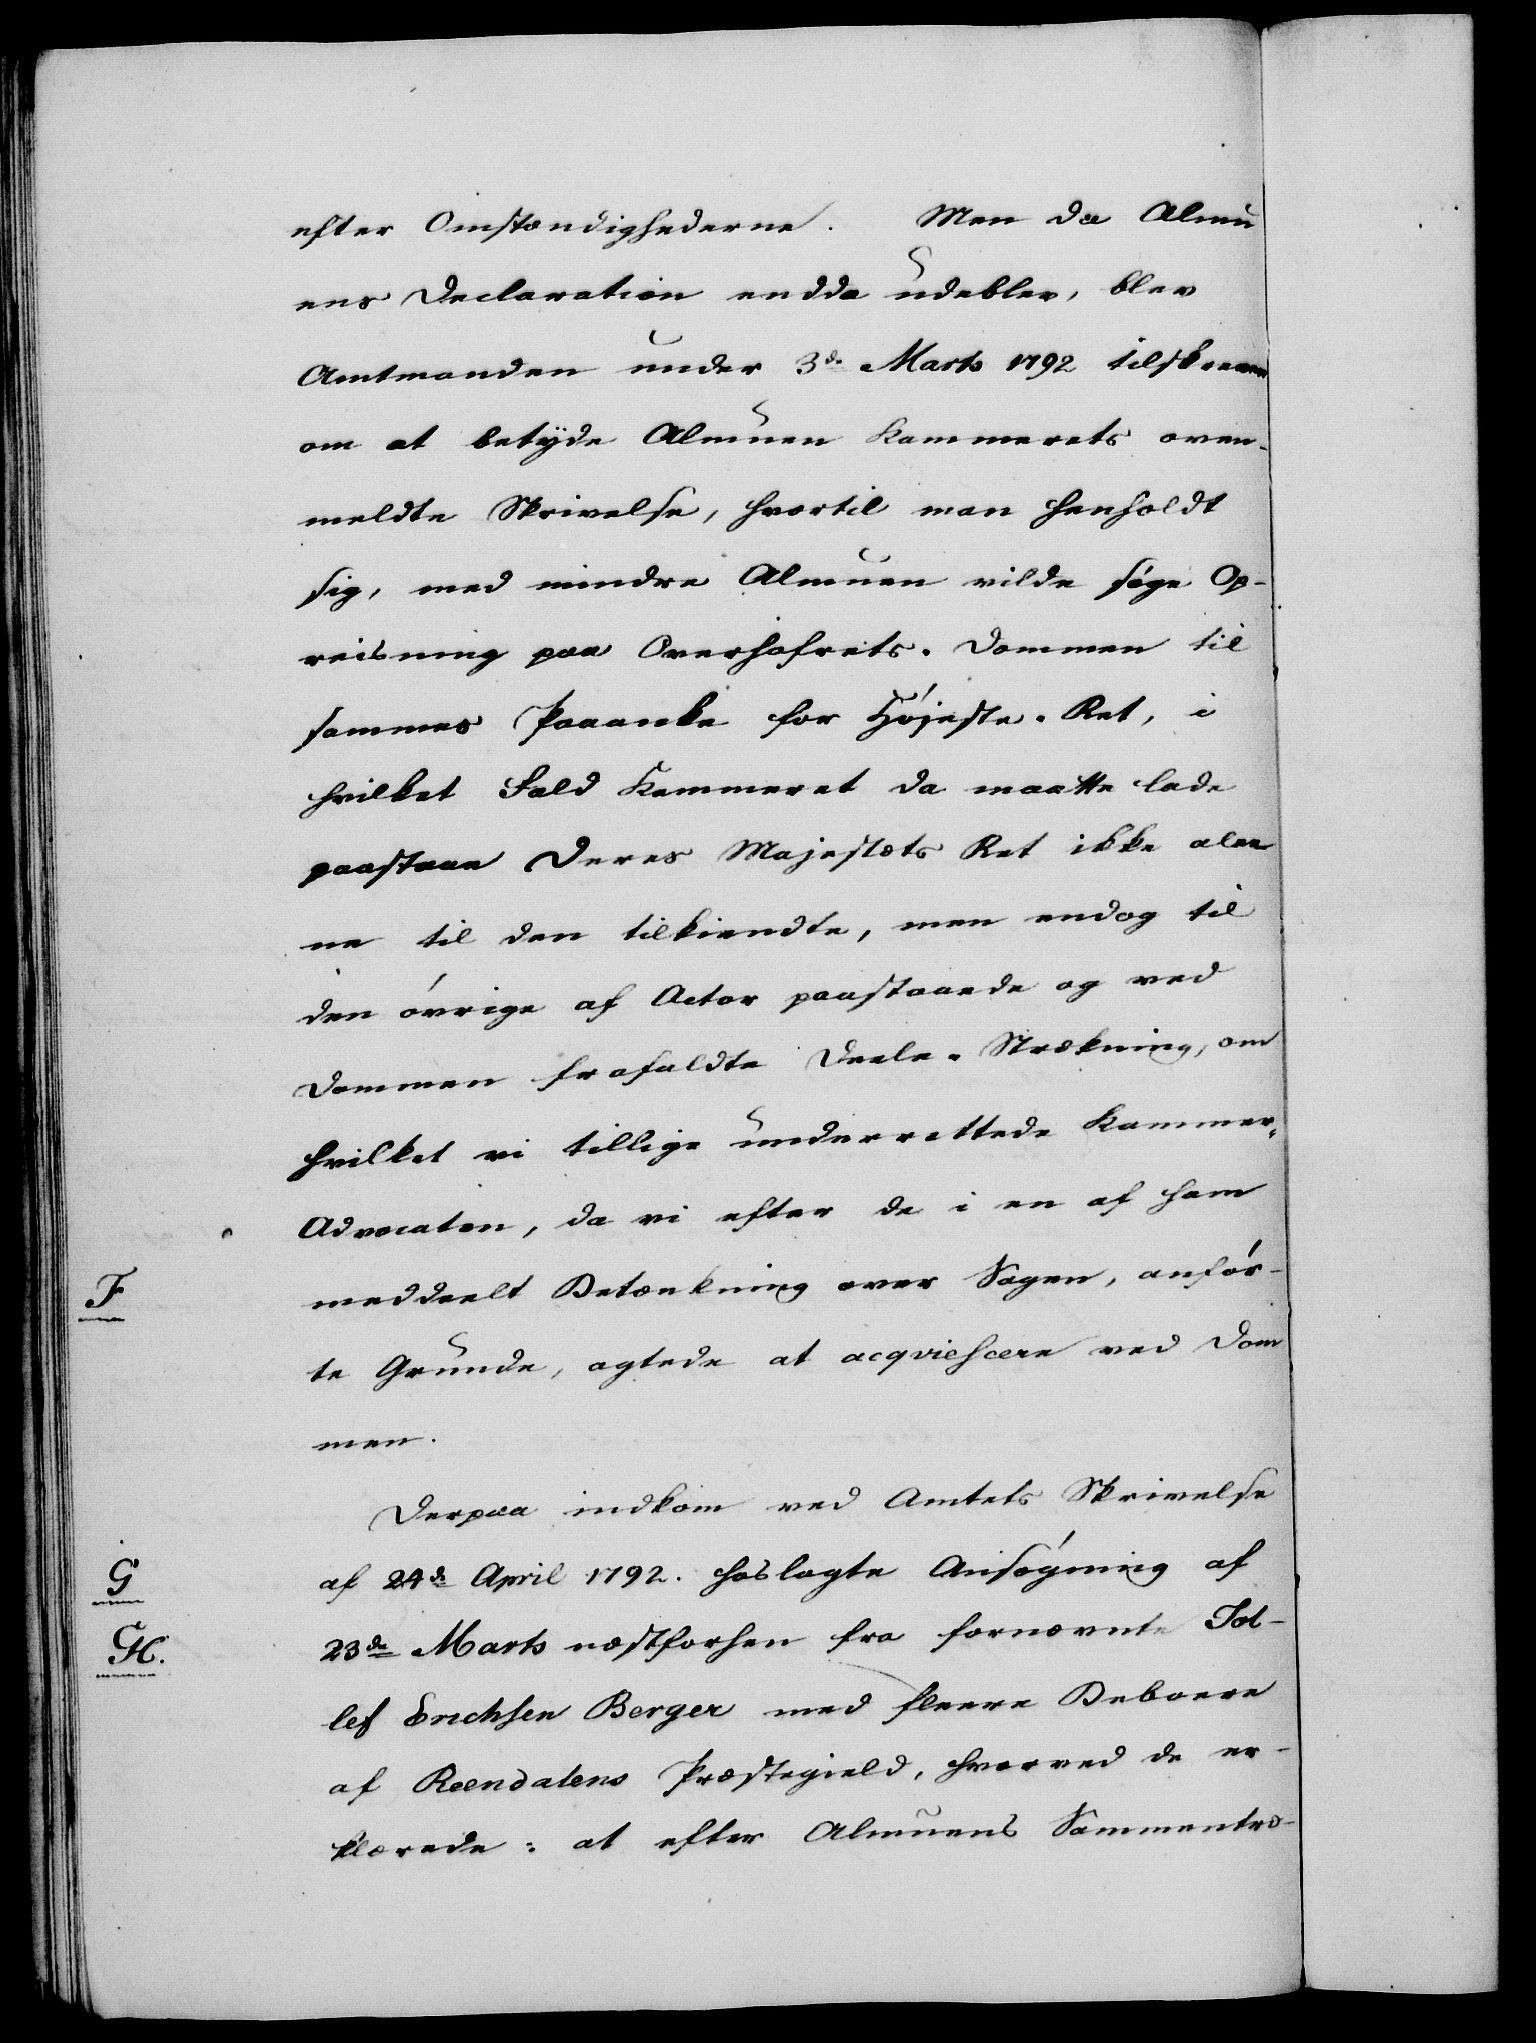 efter Omstændighederne. Men da Almu
ens Declaration endda udeblev, blev
Amtmanden under 3de Marts 1792 tilskreven
om at betyde Almuen Kammerets oven-
meldte Skrivelse, hvortil man henholdt
sig, med mindre Almuen vilde søge Op-
reisning paa Overhofrets-Dommen til
sammes Paaanke for Høieste-Ret, i
hvilket Fald Kammeret da maatte lade
paastaae Deres Majestæts Ret ikke alee
ne til den tilkiendte, men endog til
den øvrige af Actor paastaaede og ved
Dommen frafaldte Deele-Strækning, om
hvilket vi tillige underrettede Kammer-
Advocaten, da vi efter de i en af ham
F
meddeelt Betænkning over Sagen, anfør-
te Grunde, agtede at acqviescere ved Dom
men.
Derpaa indkom ved Amtets Skrivelse
G
af 24de April 1792. hoslagte Ansøgning af
H.
23de Marts næstforhen fra fornævnte Tol-
lef Erichsen Berger med fleere Beboere
af Reendalens Præstegield, hvorved de er-
klærede: at efter Almuens Sammentræ-